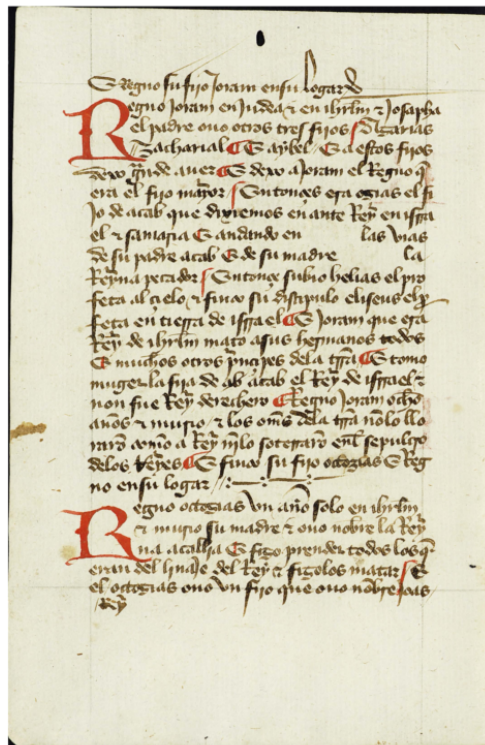 E Regno su fijo Joram en su logar
Regno Joram en Judea & en ihrlm & Josapha
el padre ouo otros tres fijos Azarias
Zacharial E E a estos fijos
dexo gnde auer E dexo a Joram el Regno q
era el fijo mayor Entonçes era ozias el fi
jo de acab que diximos en ante Rey en isra
el & samaria E andando en las vias
de su padre acab E de su madre la
Reyna pecador Entonçe subio helias el pro
feta al çielo & finco su disçipulo eliseus el p
feta en tierra de israel E Joram que era
Rey de ihrlm mato a sus hermanos todos
E muchos otros prinçipes dela trra E tomo
muger la fija de acab el Rey de israel &
non fue Rey derechero Regno Joram ocho
años & murio & los oms dela trra nolo llo
raro como a Rey nilo soterraro enl sepulcro
delos Reyes E finco su fijo octozias E Reg
no en su logar
Regno octozias vn año solo en ihrlm
& murio su madre & ouo nobre la Rey
na atalia E fizo prender todos los q
eran del linaje del Rey & fizolos matar E
el octozias ouo vn fijo que ouo nobre joas
Rey